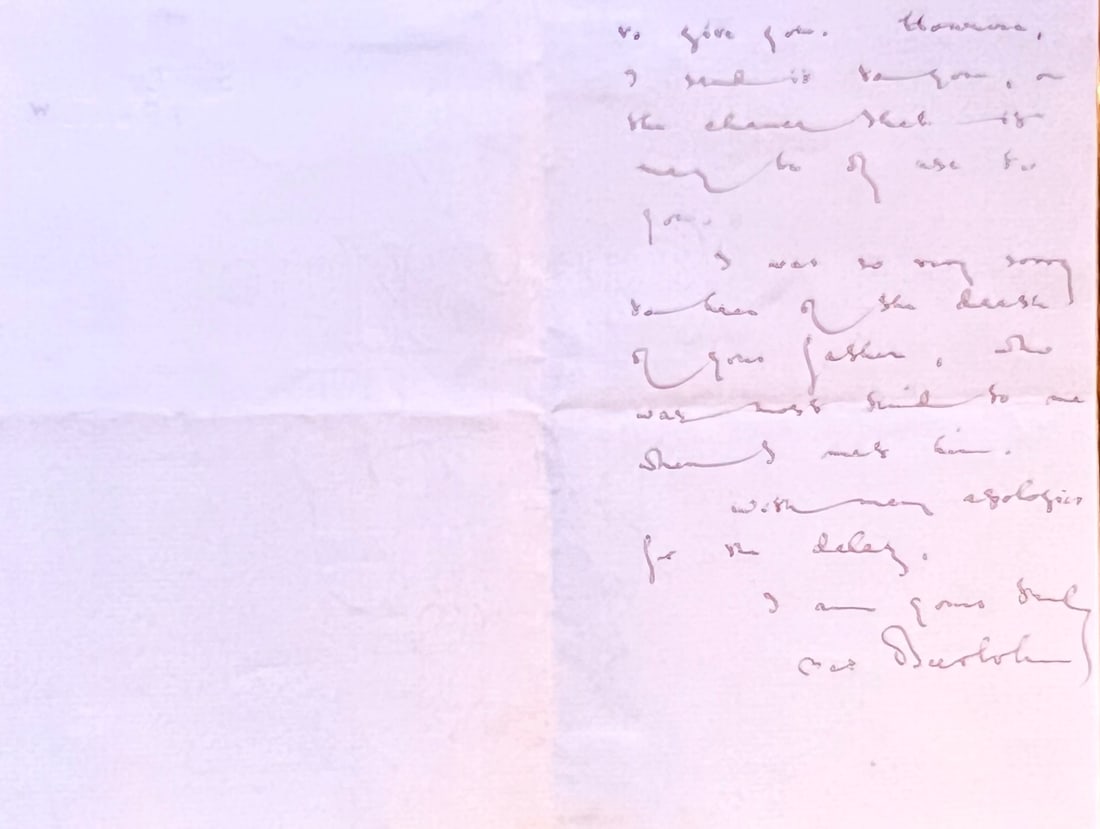 to give you. However,
I send it to you, on
the chance that it
may be of use to
you.
I was so very sorry
to hear of the death
of your father, who
was most kind to me
when I met him.
with many apologies
for the delay.
I am yours truly
Max Beerbohm